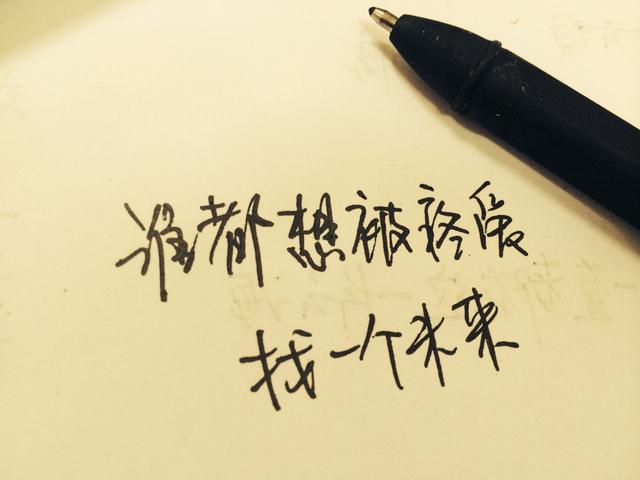 谁都想被疼爱
找一个未来